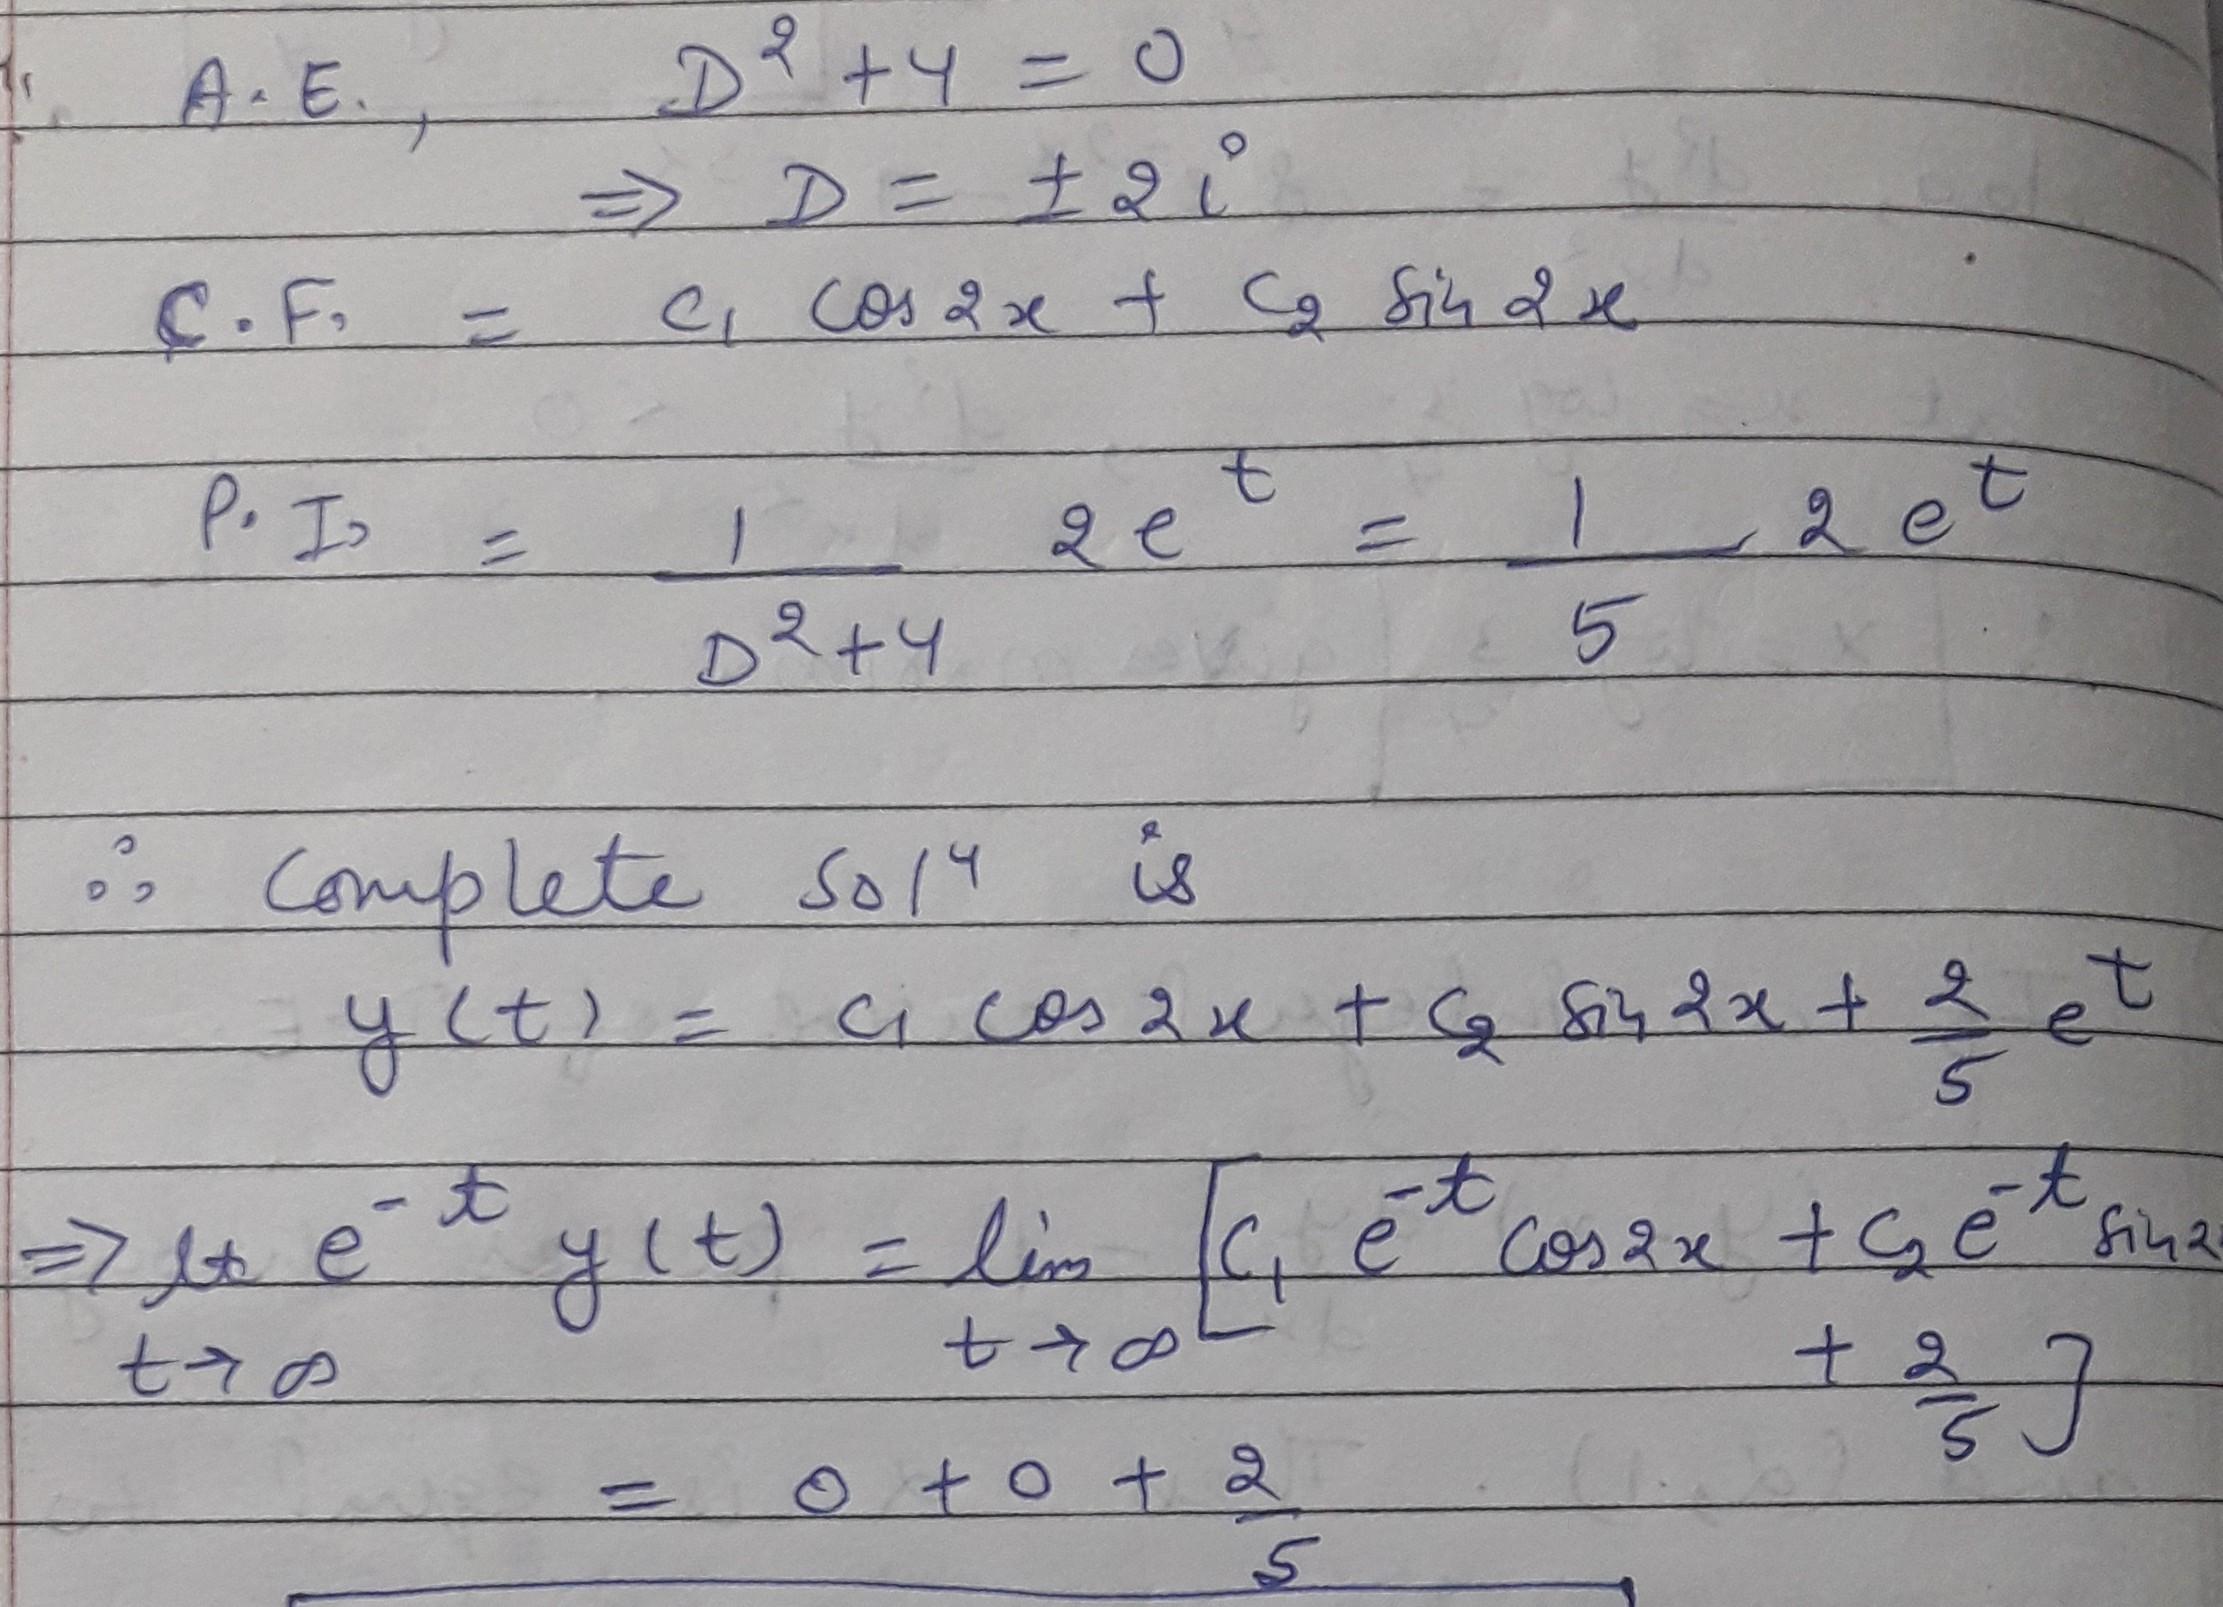 A.E., D² + 4 = 0
⇒ D = ± 2i
C.F. = c₁ cos 2x + c₂ sin 2x
P.I. = 1/(D²+4) 2e^t = 1/5 2e^t
∴ Complete solⁿ is
y(t) = c₁ cos 2x + c₂ sin 2x + 2/5 e^t
⇒ lt e^-t y(t) = lim [c₁ e^-t cos 2x + c₂ e^-t sin 2
t→∞ t→∞ + 2/5]
= 0 + 0 + 2/5